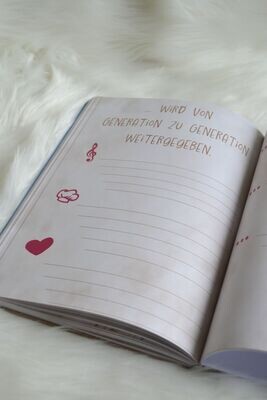 ... WIRD VON
GENERATION ZU GENERATION
WEITERGEGEBEN.